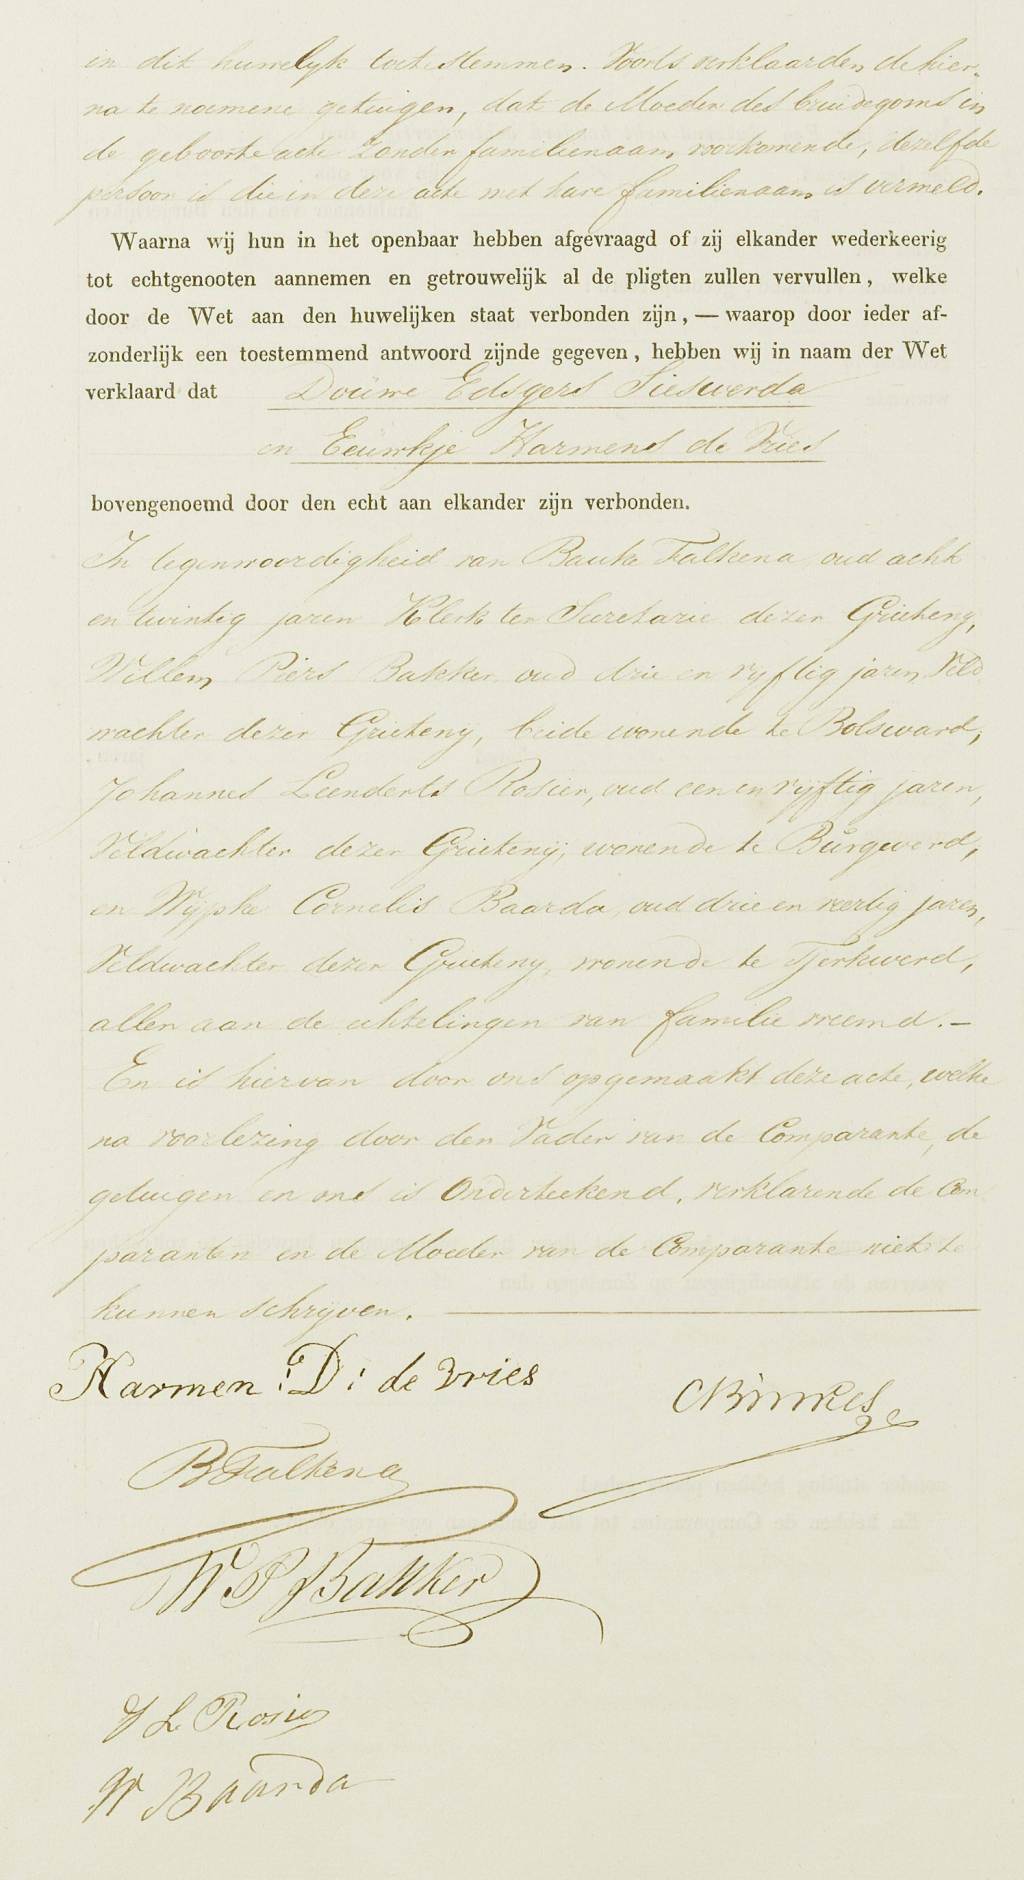 in dit huwelyk toestemmen. Voorts verklaarden de hier-
na te noemene getuigen, dat de Moeder des bruidegoms in
de geboorte acte zonder familienaam voorkomende, dezelfde
persoon is die in deze acte met hare familienaam is vermeld.
Waarna wij hun in het openbaar hebben afgevraagd of zij elkander wederkeerig
tot echtgenooten aannemen en getrouwelijk al de pligten zullen vervullen, welke
door de Wet aan den huwelijken staat verbonden zijn, — waarop door ieder af-
zonderlijk een toestemmend antwoord zijnde gegeven, hebben wij in naam der Wet
verklaard dat Douwe Edsgers Sieswerda
en Eeuwkje Harmens de Vries
bovengenoemd door den echt aan elkander zijn verbonden.
In tegenwoordigheid van Bauke Falkena, oud acht
en twintig jaren Klerk ter Secretarie dezer Grieteny,
Willem Piers Bakker oud drie en vyftig jaren, Veld
wachter dezer Grieteny, beide wonende te Bolsward,
Johannes Leenderts Rosier, oud een en vyftig jaren,
Veldwachter dezer Grieteny, wonende te Burgwerd,
en Wypke Cornelis Baarda, oud drie en veertig jaren,
Veldwachter dezer Grieteny, wonende te Tjerkwerd,
allen aan de echtelingen van familie vreemd. —
En is hiervan door ons opgemaakt deze acte, welke
na voorlezing door den Vader van de Comparante, de
getuigen en ons is Onderteekend, verklarende de Com
paranten en de Moeder van de Comparante niet te
kunnen schryven.
Harmen : D : de Vries
CBinnkes
B Falkena
W P Bakker
J L Rosier
W Baarda